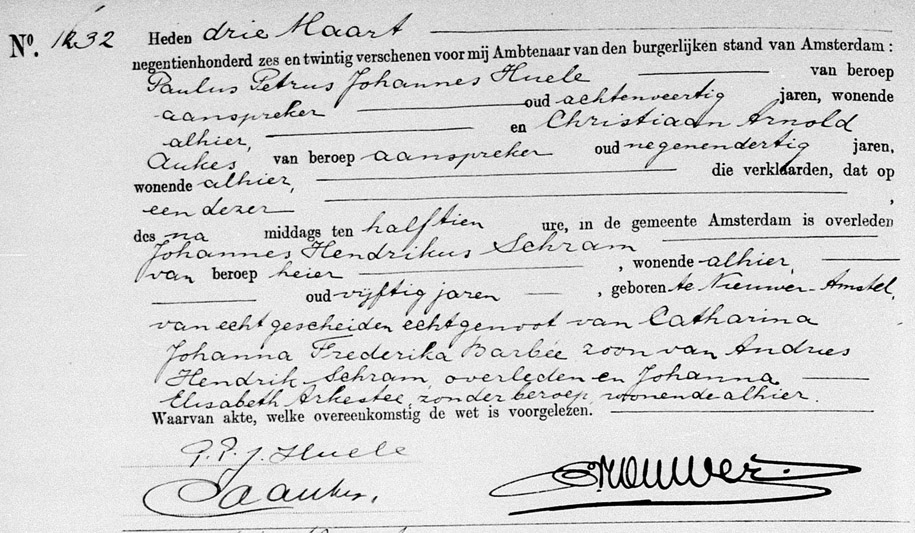 No. 1232 Heden drie Maart
negentienhonderd zes en twintig verschenen voor mij Ambtenaar van den burgerlijken stand van Amsterdam :
Paulus Petrus Johannes Huele van beroep
aanspreker oud achtenveertig jaren, wonende
alhier, en Christiaan Arnold
Aukes van beroep aanspreker oud negenendertig jaren,
wonende alhier, die verklaarden, dat op
een dezer ,
des na middags ten half tien ure, in de gemeente Amsterdam is overleden
Johannes Hendrikus Schram
van beroep heier , wonende alhier,
oud vijftig jaren , geboren te Nieuwer-Amstel,
van echt gescheiden echtgenoot van Catharina
Johanna Frederika Barbée zoon van Andries
Hendrik Schram, overleden en Johanna
Elisabeth Arkestee, zonder beroep, wonende alhier.
Waarvan akte, welke overeenkomstig de wet is voorgelezen.
P. P. J. Huele
C A Aukes.